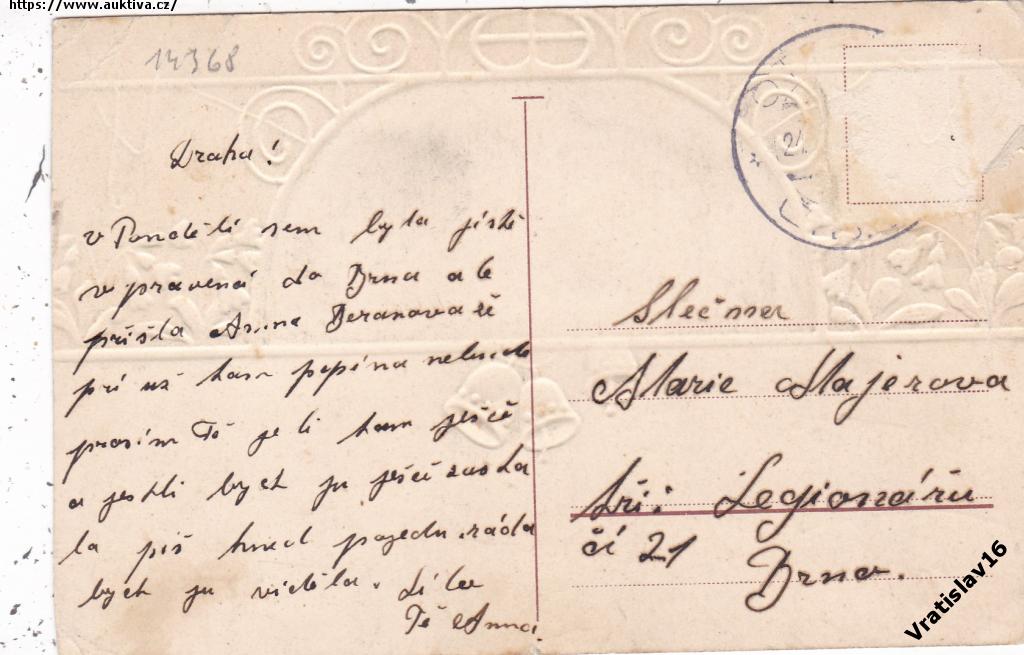 https://www.auktiva.cz/
14368
Draha!
v Pondělí sem byla jistě
vpravená do Brna ale
přišla Anna Beranova že
prí už tam pepina nebude
prosím Tě je li tam ješče
a jestli bych ju ješčě zasta
la piš hned pojedu. ráda
bych ju viděla. Líba
Tě Anna.
24
Slečna
Marie Majerova
tři: Legionářu
čí 21
Brno.
Vratislav16